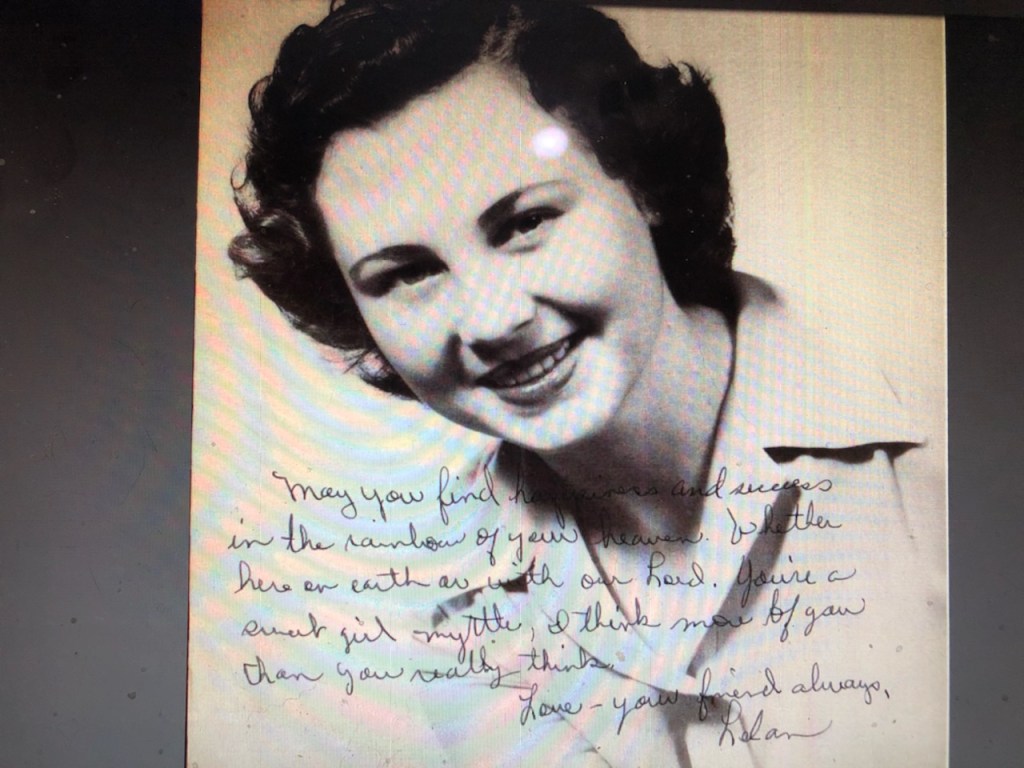 May you find happiness and success
in the rainbow of your heaven. Whether
here on earth or with our Lord. You're a
sweet girl myrtle, I think more of you
than you really think.
Love - your friend always,